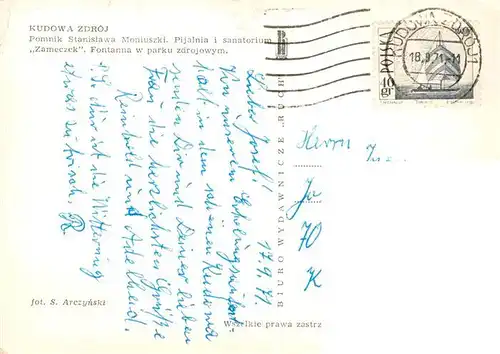 KUDOWA ZDRÓJ
Pomnik Stanisława Moniuszki. Pijalnia i sanatorium
„Zameczek". Fontanna w parku zdrojowym.
17.9.71
Lieber Josef!
Von unserem Erholungsaufent-
halt in dem schönen Kudowa
senden Dir und Deiner lieben
Frau die herzlichsten Grüße
Reinhold und Adelheid.
ist die Witterung
etwas zu frisch.
BIURO WYDAWNICZE „RUCH"
KUDOWA ZDRÓJ 1
18.9.71-11
POLSKA
40
gr
Herrn
Jo
70
K
fot. S. Arczyński
Wszelkie prawa zastrz